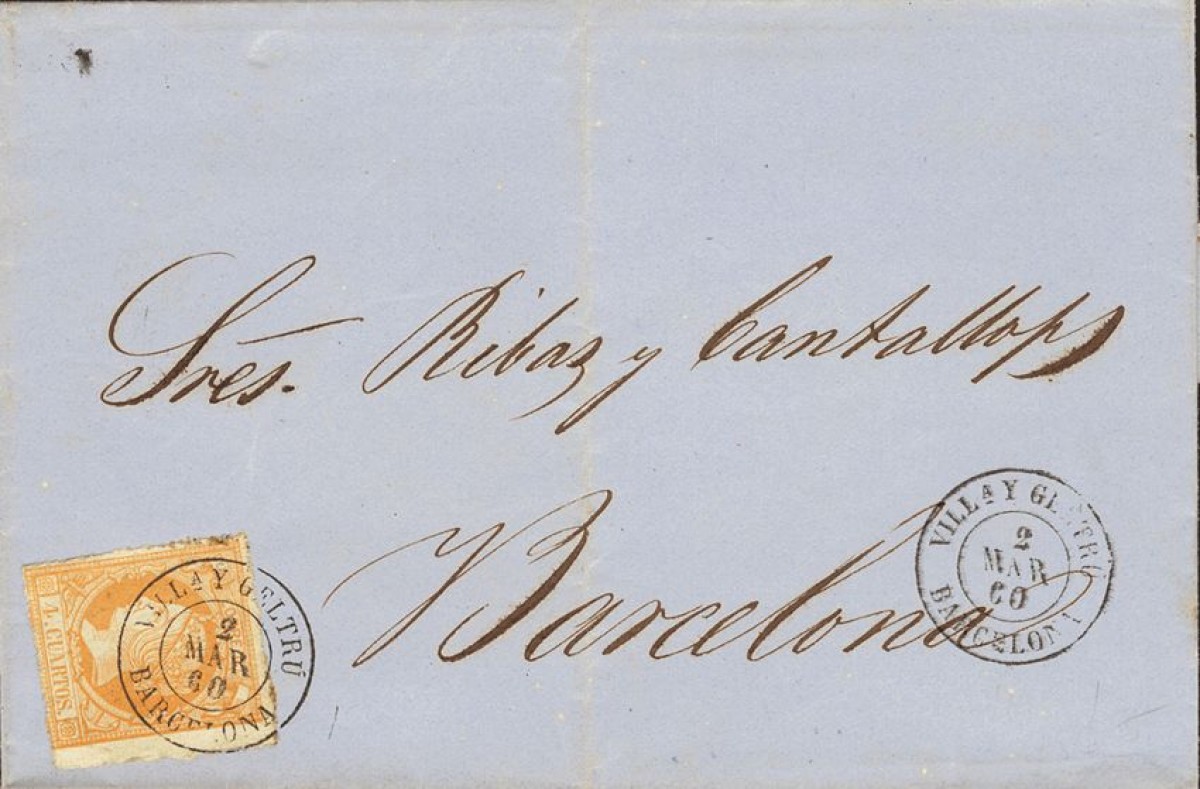 Sres. Ribas y Cantallops
Barcelona
VILLA Y GELTRÚ
2
MAR
60
BARCELONA
4 CUARTOS.
VILLA Y GELTRÚ
2
MAR
60
BARCELONA